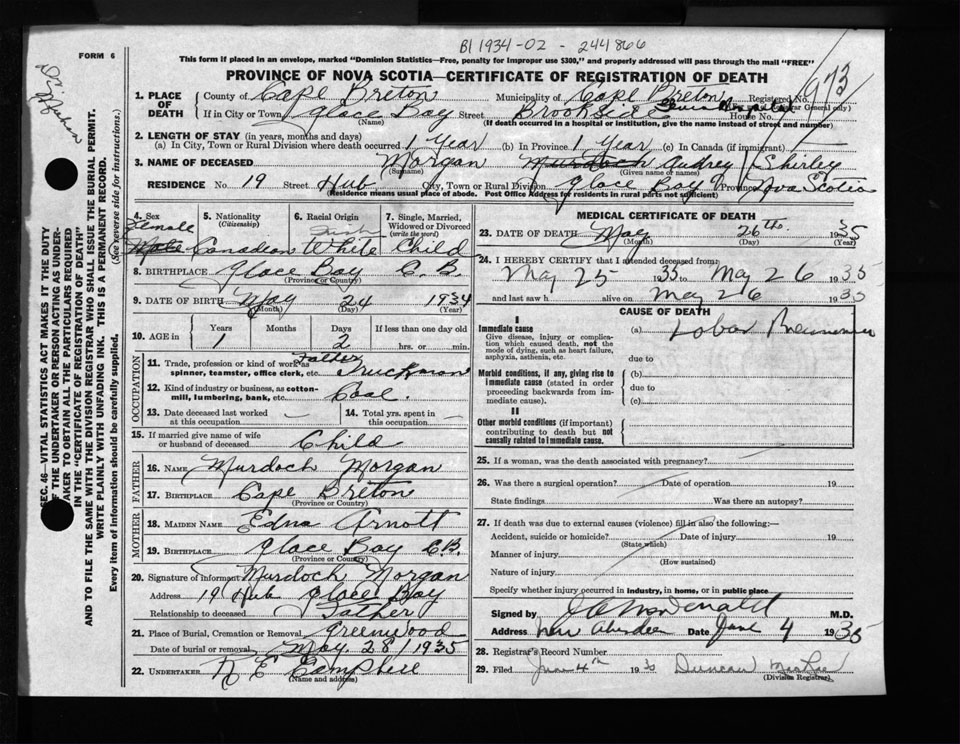 BI 1934-02 - 244866
FORM 6
This form if placed in an envelope, marked "Dominion Statistics—Free, penalty for improper use $300," and properly addressed will pass through the mail "FREE"
PROVINCE OF NOVA SCOTIA—CERTIFICATE OF REGISTRATION OF DEATH
1. PLACE OF DEATH County of Cape Breton Municipality of Cape Breton Registered No. (Registrar General only)
If in City or Town Glace Bay Street Brookside House No.
(Name) (If death occurred in a hospital or institution, give the name instead of street and number)
2. LENGTH OF STAY (in years, months and days)
(a) In City, Town or Rural Division where death occurred 1 Year (b) In Province 1 Year (c) In Canada (if immigrant)
3. NAME OF DECEASED Morgan Murdoch Audrey Shirley
(Surname) (Given name or names)
RESIDENCE No 19 Street Hub City, Town or Rural Division Glace Bay Province Nova Scotia
(Residence means usual place of abode. Post Office Address for residents in rural parts not sufficient)
SEC. 46—VITAL STATISTICS ACT MAKES IT THE DUTY
OF THE UNDERTAKER OR PERSON ACTING AS UNDER-
TAKER TO OBTAIN ALL THE PARTICULARS REQUIRED
IN THE "CERTIFICATE OF REGISTRATION OF DEATH"
AND TO FILE THE SAME WITH THE DIVISION REGISTRAR WHO SHALL ISSUE THE BURIAL PERMIT.
WRITE PLAINLY WITH UNFADING INK. THIS IS A PERMANENT RECORD.
Every item of information should be carefully supplied. (See reverse side for instructions.)
4. Sex Female Male
5. Nationality (Citizenship) Canadian
6. Racial Origin Irish White
7. Single, Married, Widowed or Divorced (write the word) Child
8. BIRTHPLACE Glace Bay C.B.
(Province or County)
9. DATE OF BIRTH May 24 1934
(Month) (Day) (Year)
10. AGE in Years 1 Months Days 2 If less than one day old hrs. or min.
OCCUPATION
11. Trade, profession or kind of work as spinner, teamster, office clerk, etc. Father Truckman
12. Kind of industry or business, as cotton-mill, lumbering, bank, etc. Coal.
13. Date deceased last worked at this occupation — 14. Total yrs. spent in this occupation —
15. If married give name of wife or husband of deceased Child
FATHER
16. NAME Murdoch Morgan
17. BIRTHPLACE Cape Breton
(Province or Country)
MOTHER
18. MAIDEN NAME Edna Arnott
19. BIRTHPLACE Glace Bay C.B.
(Province or Country)
20. Signature of informant Murdoch Morgan
Address 19 Hub Glace Bay
Relationship to deceased Father
21. Place of Burial, Cremation or Removal Greenwood
Date of burial or removal May 28/1935
22. UNDERTAKER R E Campbell
(Name and address)
MEDICAL CERTIFICATE OF DEATH
23. DATE OF DEATH May 26th. 1935
(Month) (Day) (Year)
24. I HEREBY CERTIFY that I attended deceased from:
May 25 1935 to May 26 1935
and last saw h alive on May 26 1935
CAUSE OF DEATH
I
Immediate cause
Give disease, injury, or complication which caused death, not the mode of dying, such as heart failure, asphyxia, asthenia, etc.
(a) Lobar Pneumonia
due to
Morbid conditions, if any, giving rise to immediate cause (stated in order proceeding backwards from immediate cause).
(b)
due to
(c)
II
Other morbid conditions (if important) contributing to death but not causally related to immediate cause.
25. If a woman, was the death associated with pregnancy?
26. Was there a surgical operation? Date of operation 19
State findings Was there an autopsy?
27. If death was due to external causes (violence) fill in also the following:—
Accident, suicide or homicide? Date of injury 19
(State which)
Manner of injury
(How sustained)
Nature of injury
Specify whether injury occurred in industry, in home, or in public place
Signed by McDonald M.D.
Address New Aberdeen Date June 4 1935
28. Registrar's Record Number
29. Filed June 4th 19 Duncan
(Division Registrar)